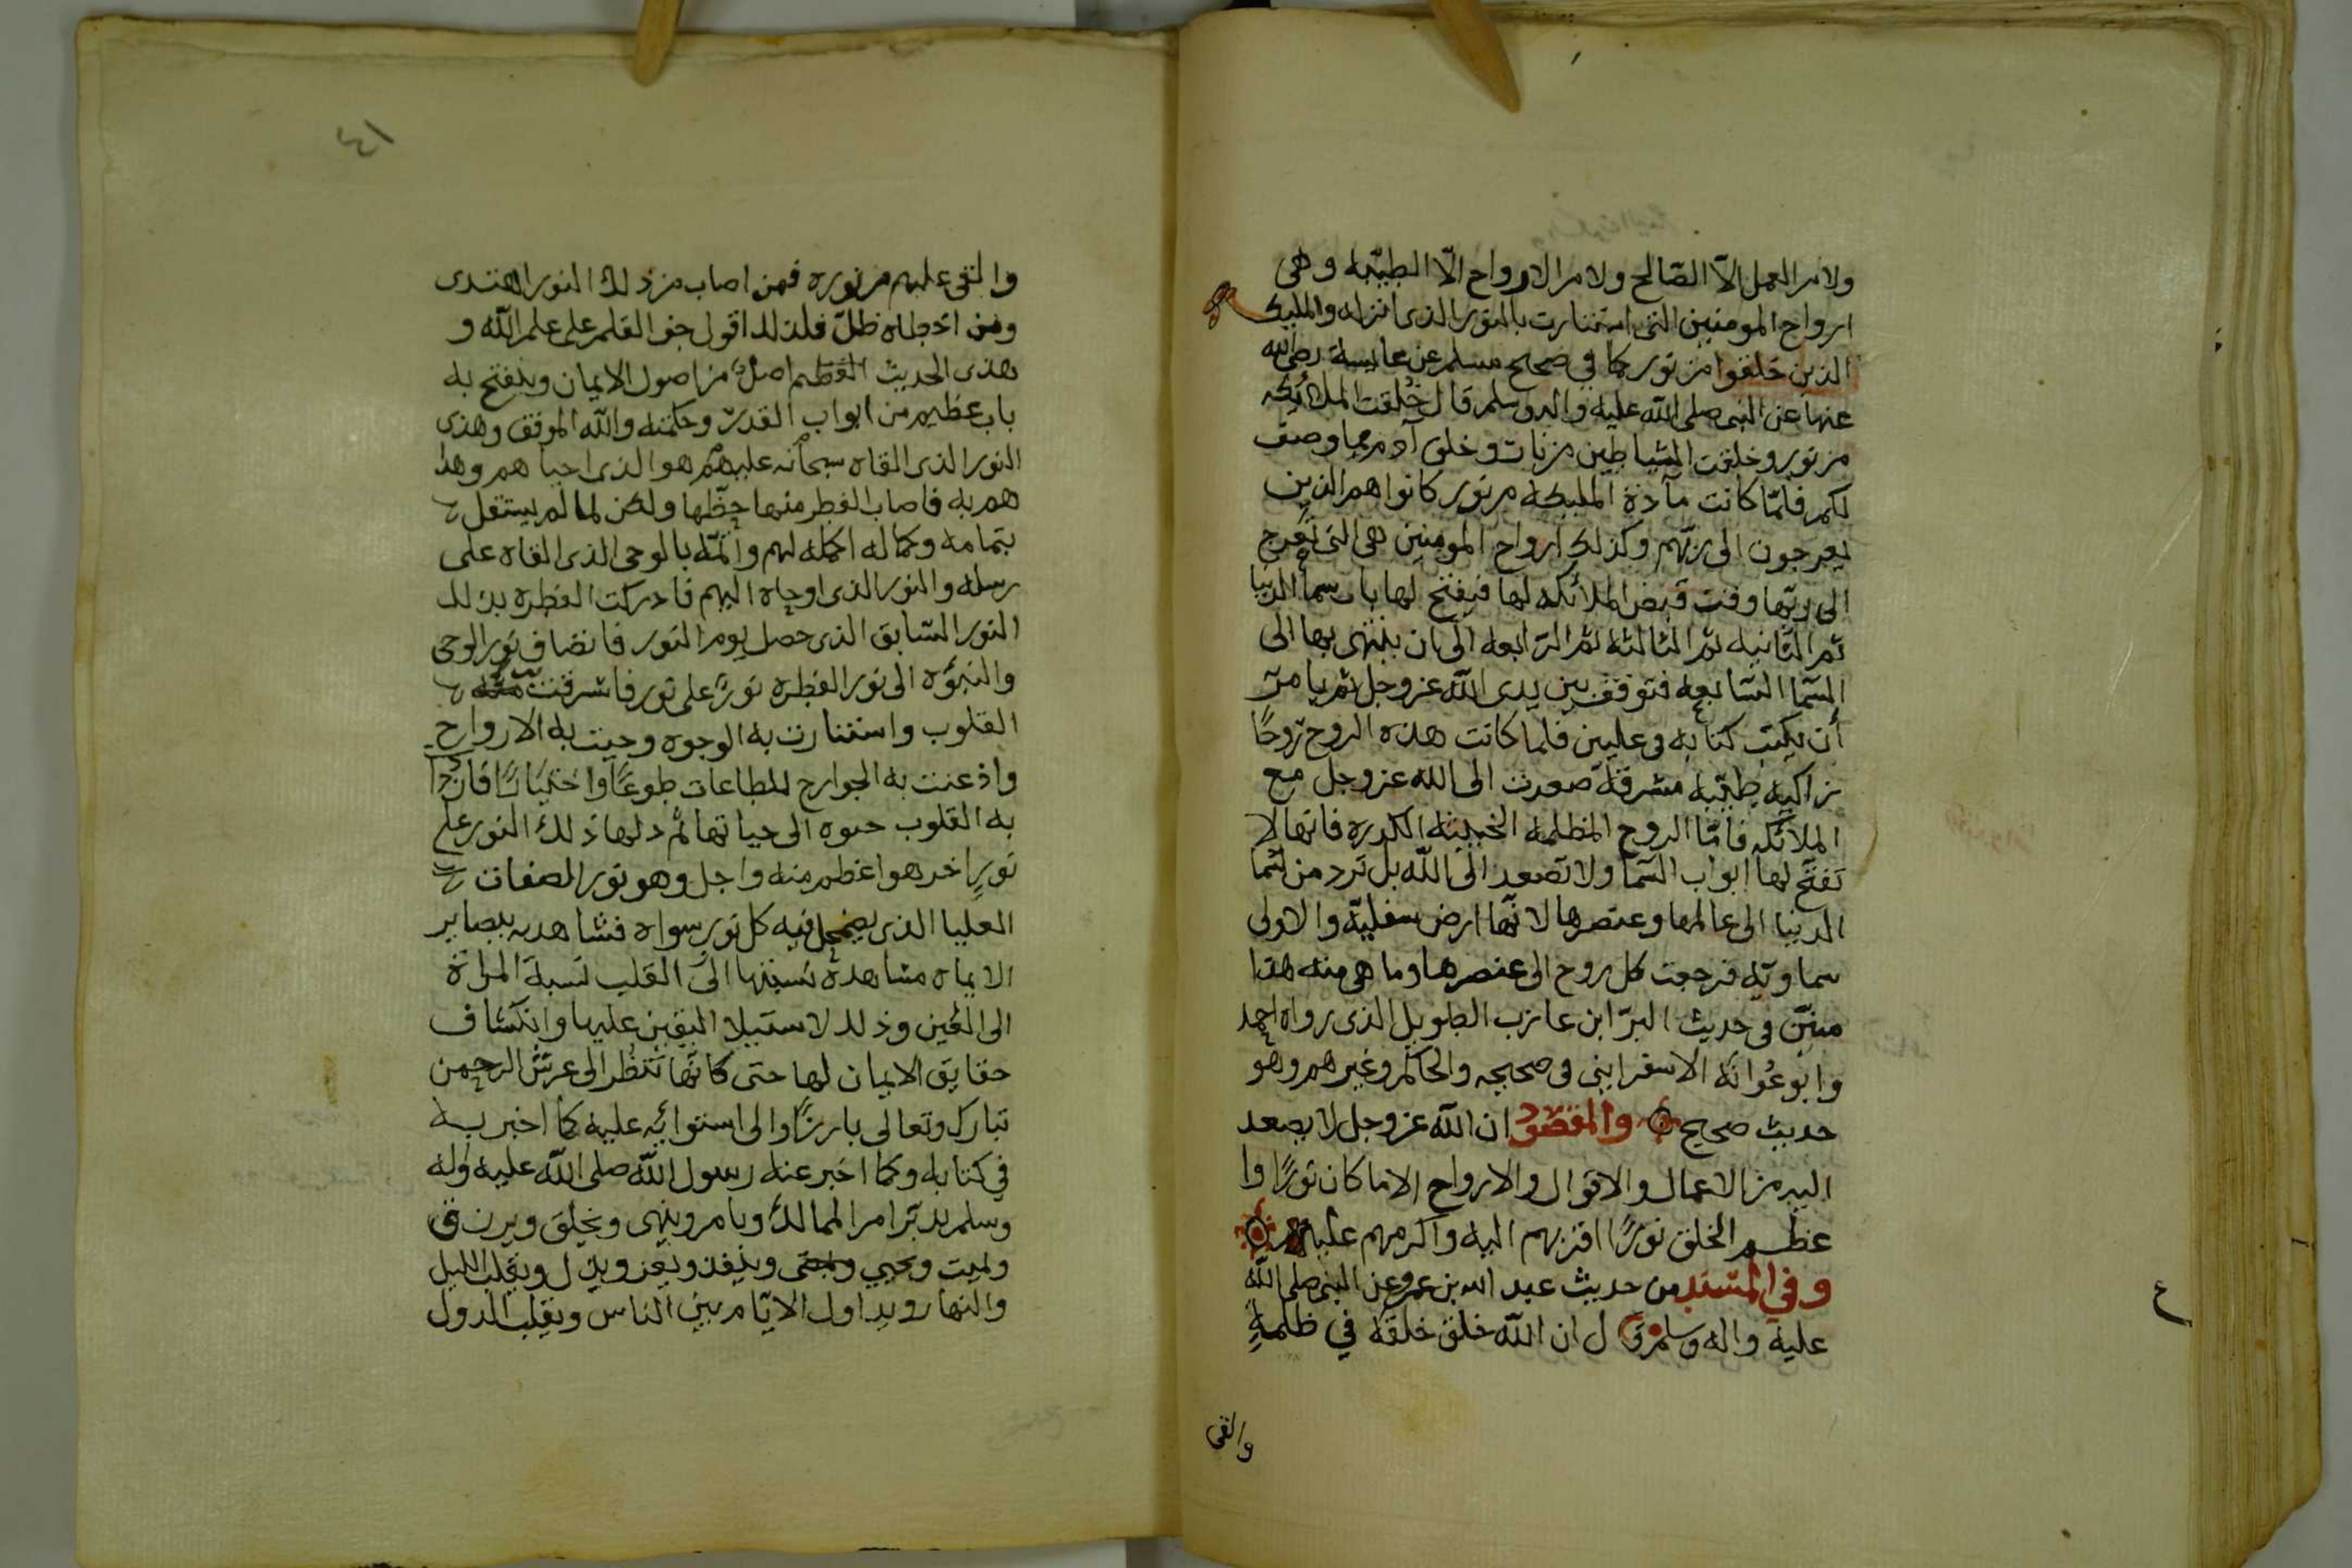 ولا من العمل الّا الصّالح ولا من الارواح الّا الطيّبه وهى
ارواح المومنين التى استنارت بالنور الذى انزله والمليكه
الذين خلقوا من نور كما في صحيح مسلم عن عايشة رضى الله
عنها عن النبى صلى الله عليه واله وسلم قال خُلقت الملائكه
من نور وخلقت الشياطين من نار وخلق آدم مما وصف
لكم فلمّا كانت مآدة المليكه من نور كانوا هم الذين
يعرجون الى ربّهم وكذلك ارواح المومنين هى التى تعرج
الى ربّها وقت قبض الملائكه لها فيفتح لها باب سما الدنيا
ثم الثانيه ثم الثالثه ثم الرّابعه الى ان ينتهى بها الى
السّما السّابعه فتوقف بين يدى الله عز وجل ثم يامر
أن يكتب كتابه فى عليين فلما كانت هذه الروح رُوحًا
زاكيه طيّبه مشرقة صعدت الى الله عز وجل مع
الملائكه فامّا الروح المظلمه الخبيثه الكدره فانها لا
تفتّح لها ابواب السّما ولا تصعد الى الله بل ترد من السّما
الدنيا الى عالمها وعنصرها لانّها ارض سفليّه والاولى
سماويّه فرجعت كل روح الى عنصرها وما هى منه هذا
مبيّن فى حديث البرّا ابن عازب الطويل الذى رواه احمد
وابوعُوانَه الاسفراينى فى صحيحه والحاكم وغيرهم وهو
حديث صحيح والمقصود ان الله عز وجل لا يصعد
اليه من الاعمال والاقوال والارواح الا ما كان نورًا وا
عظم الخلق نورًا اقربهم اليه واكرمهم عليه
وفي المسند من حديث عبد الله بن عمرو عن النبى صلى الله
عليه واله وسلم قال ان الله خلق خلقه في ظلمةٍ
والقى
٤١
والقى عليهم من نوره فمن اصاب من ذلك النور اهتدى
ومن اخطاه ظلّ فلذلك اقول جف القلم على علم الله و
هذى الحديث العظيم اصلٌ من اصول الايمان وينفتح به
باب عظيم من ابواب القدر وحكمته والله الموفق وهذى
النور الذى القاه سبحانه عليهم هو الذى احياهم وهدا
هم به فاصاب الفطر منها حظّها ولكن لما لم يستقل
بتمامه وكماله اكمله لهم واتمّه بالوحى الذى القاه على
رسله والنور الذى اوحاه اليهم فادركت الفطره بذلك
النور السّابق الذى حصل يوم النور فانضاف نور الوحى
والنبوّه الى نور الفطره نورٌ على نور فاشرقت منه
القلوب واستنارت به الوجوه وحييت به الارواح
واذعنت به الجوارح للطاعات طوعًا واختيارًا فازدا
به القلوب حيوه الى حياتها ثم دلها ذلك النور على
نورٍ اخر هو اعظم منه واجل وهو نور الصفات
العليا الذى يضمحل فيه كل نور سواه فشاهدته ببصاير
الايمان مشاهدة نسبتها الى القلب نسبة المراة
الى العين وذلك لاستيلا اليقين عليها وانكشاف
حقايق الايمان لها حتى كانّها تنظُر الى عرش الرحمن
تبارك وتعالى بارزًا والى استوايّه عليه كما اخبر به
في كتابه وكما اخبر عنه رسول الله صلى الله عليه واله
وسلم يدبّر امر الممالك ويامر وينهى ويخلق ويرزق
ويميت ويحيي ويقضى وينفذ ويعز ويذل ويقلب الليل
والنهار ويداول الايّام بين الناس ويقلب الدول